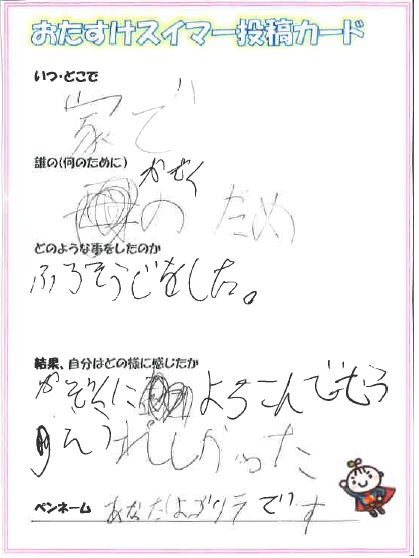 おたすけスイマー投稿カード
いつ・どこで
家で
誰の(何のために)
かぞく
の ため
どのような事をしたのか
ふろそうじをした。
結果、自分はどの様に感じたか
かぞくに よろこんでもら
うれしかった
ペンネーム
あなたはゴリラです